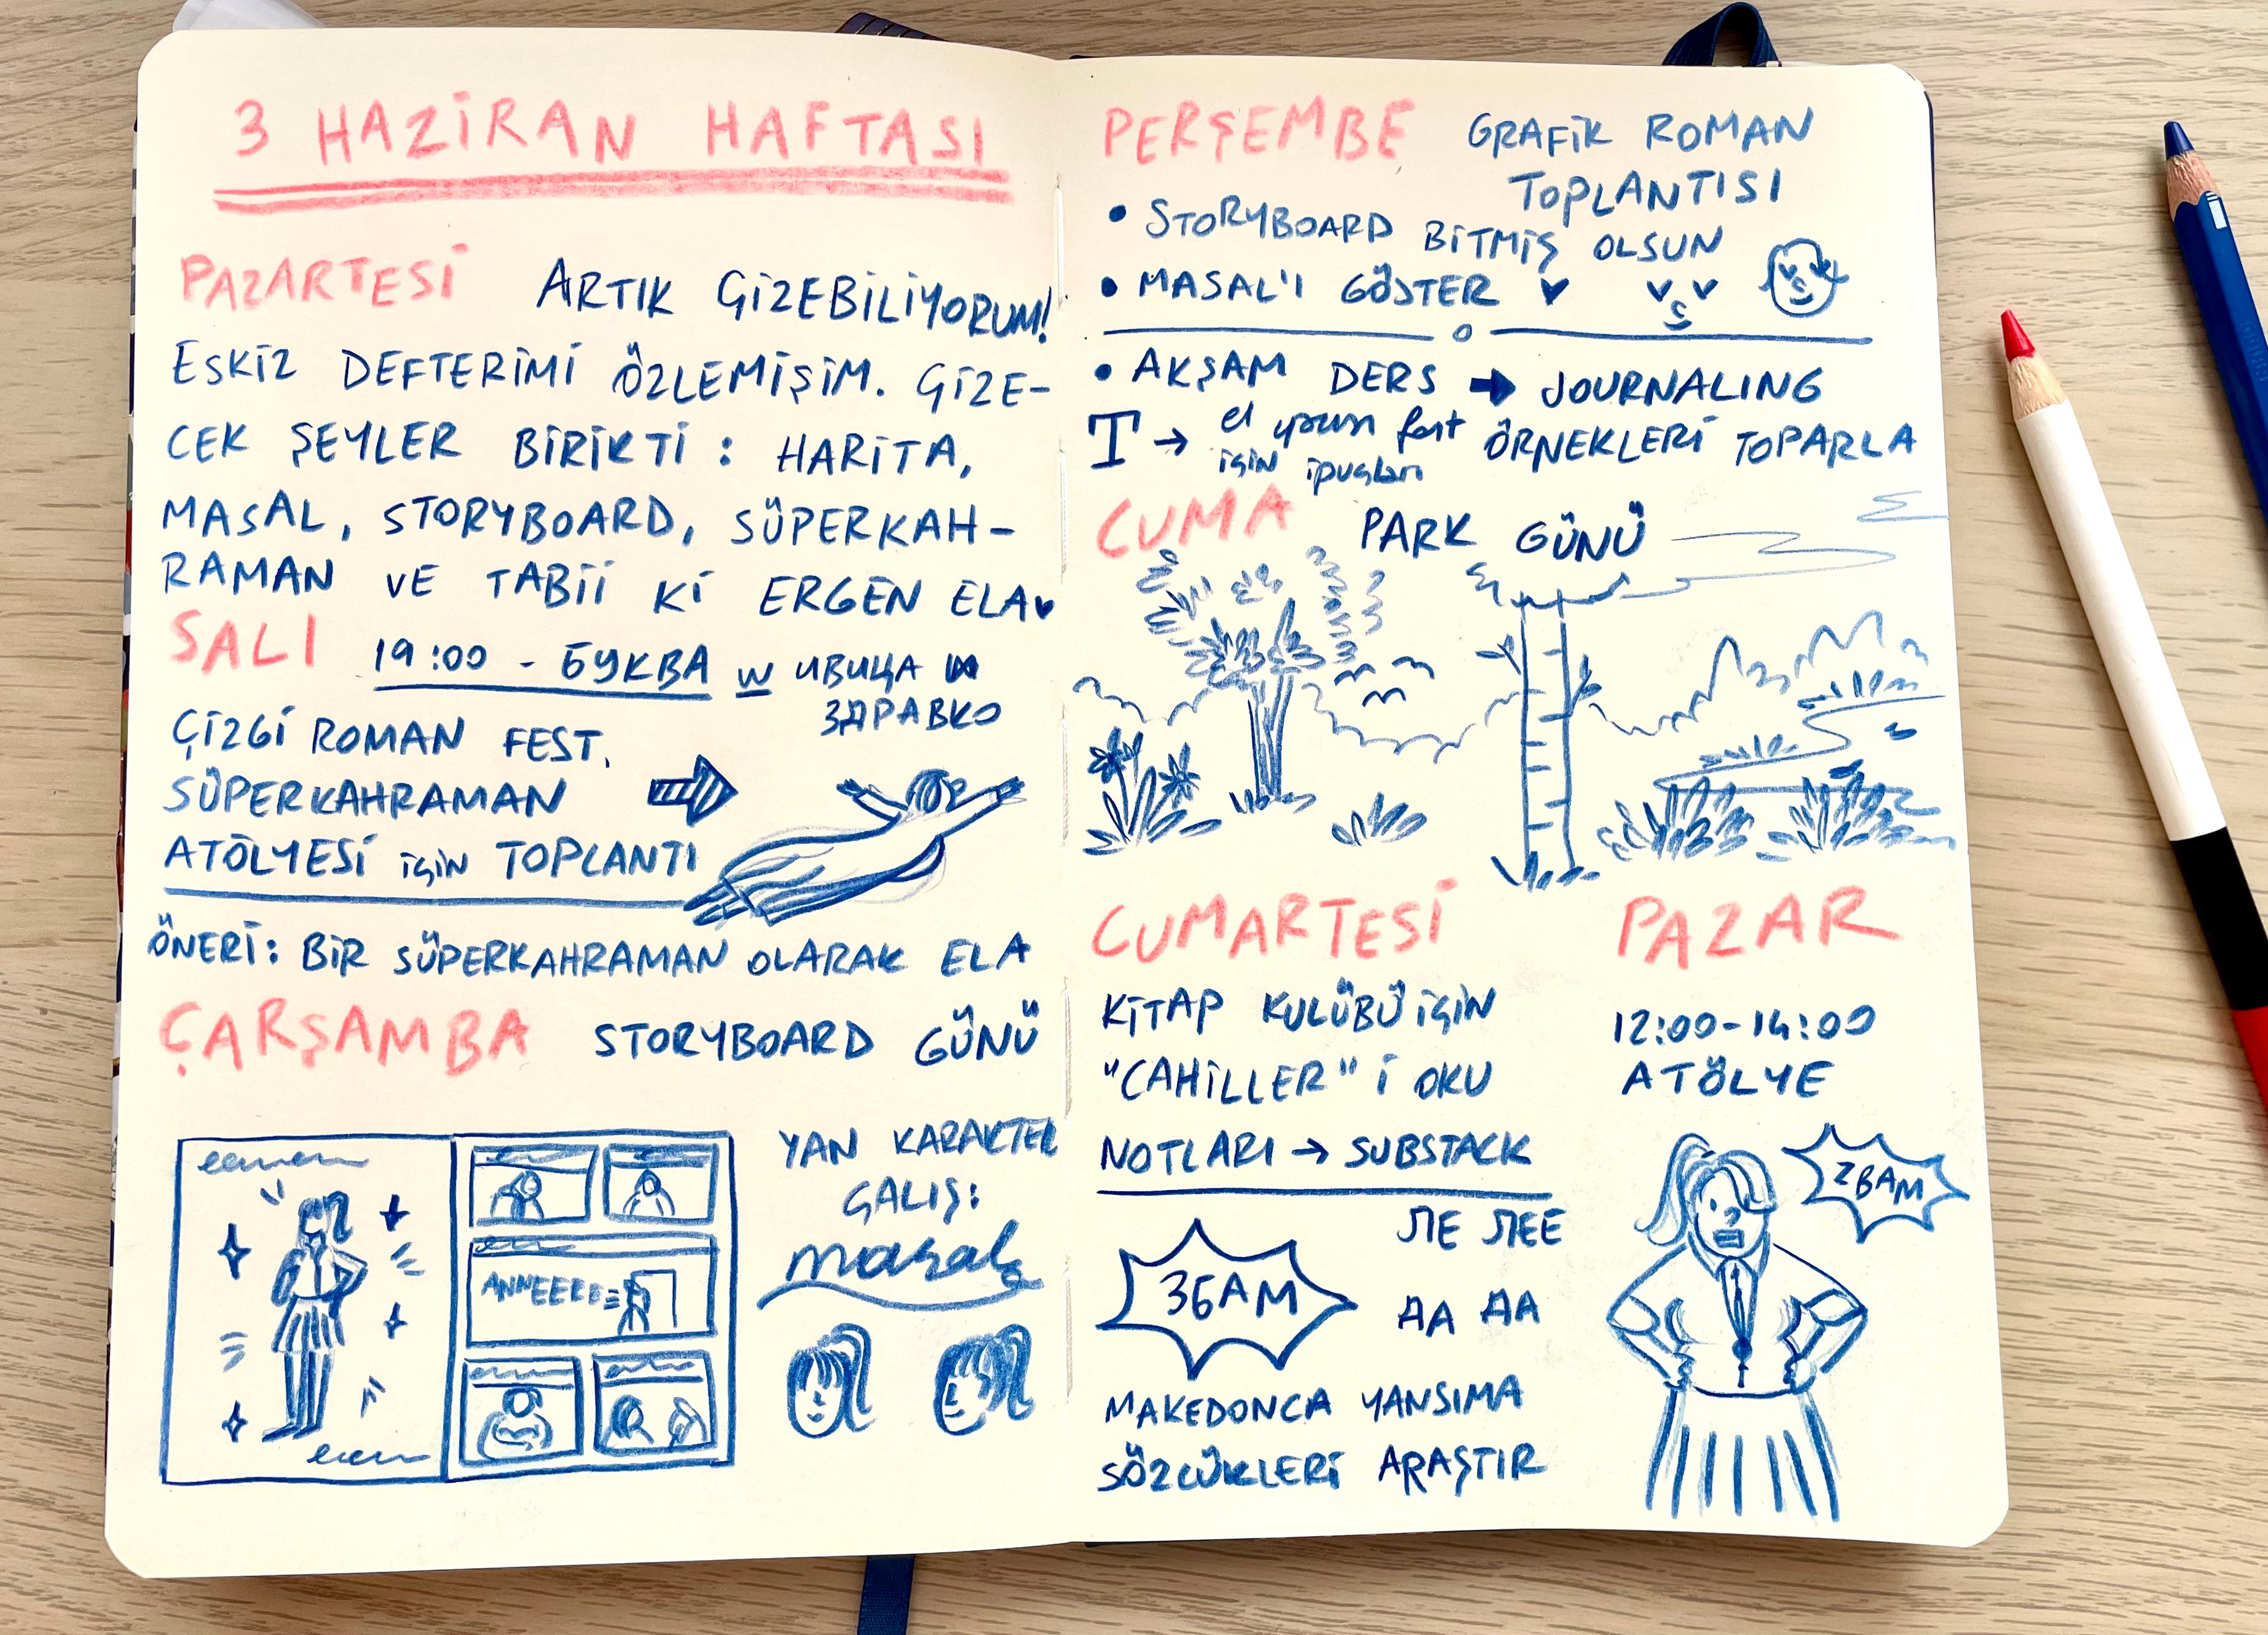 3 HAZİRAN HAFTASI
PAZARTESİ ARTIK ÇİZEBİLİYORUM!
ESKİZ DEFTERİMİ ÖZLEMİŞİM. ÇİZE-
CEK ŞEYLER BİRİKTİ : HARİTA,
MASAL, STORYBOARD, SÜPERKAH-
RAMAN VE TABİİ Kİ ERGEN ELA
SALI 19:00 - БУКВА w ИВИЦА w
ЗДРАВКО
ÇİZGİ ROMAN FEST.
SÜPERKAHRAMAN
ATÖLYESİ için TOPLANTI
ÖNERİ: BİR SÜPERKAHRAMAN OLARAK ELA
ÇARŞAMBA STORYBOARD GÜNÜ
YAN KARAKTER
ÇALIŞ:
masal
ANNEEEE
PERŞEMBE GRAFİK ROMAN
TOPLANTISI
• STORYBOARD BİTMİŞ OLSUN
• MASAL'I GÖSTER
• AKŞAM DERS → JOURNALING
T → el yazısı font ÖRNEKLERİ TOPARLA
için ipuçları
CUMA PARK GÜNÜ
CUMARTESİ
KİTAP KULÜBÜ için
"CAHİLLER" İ OKU
NOTLARI → SUBSTACK
ЗБАМ
ЛЕ ЛЕЕ
АА АА
MAKEDONCA YANSIMA
SÖZCÜKLERİ ARAŞTIR
PAZAR
12:00-14:00
ATÖLYE
ZBAM